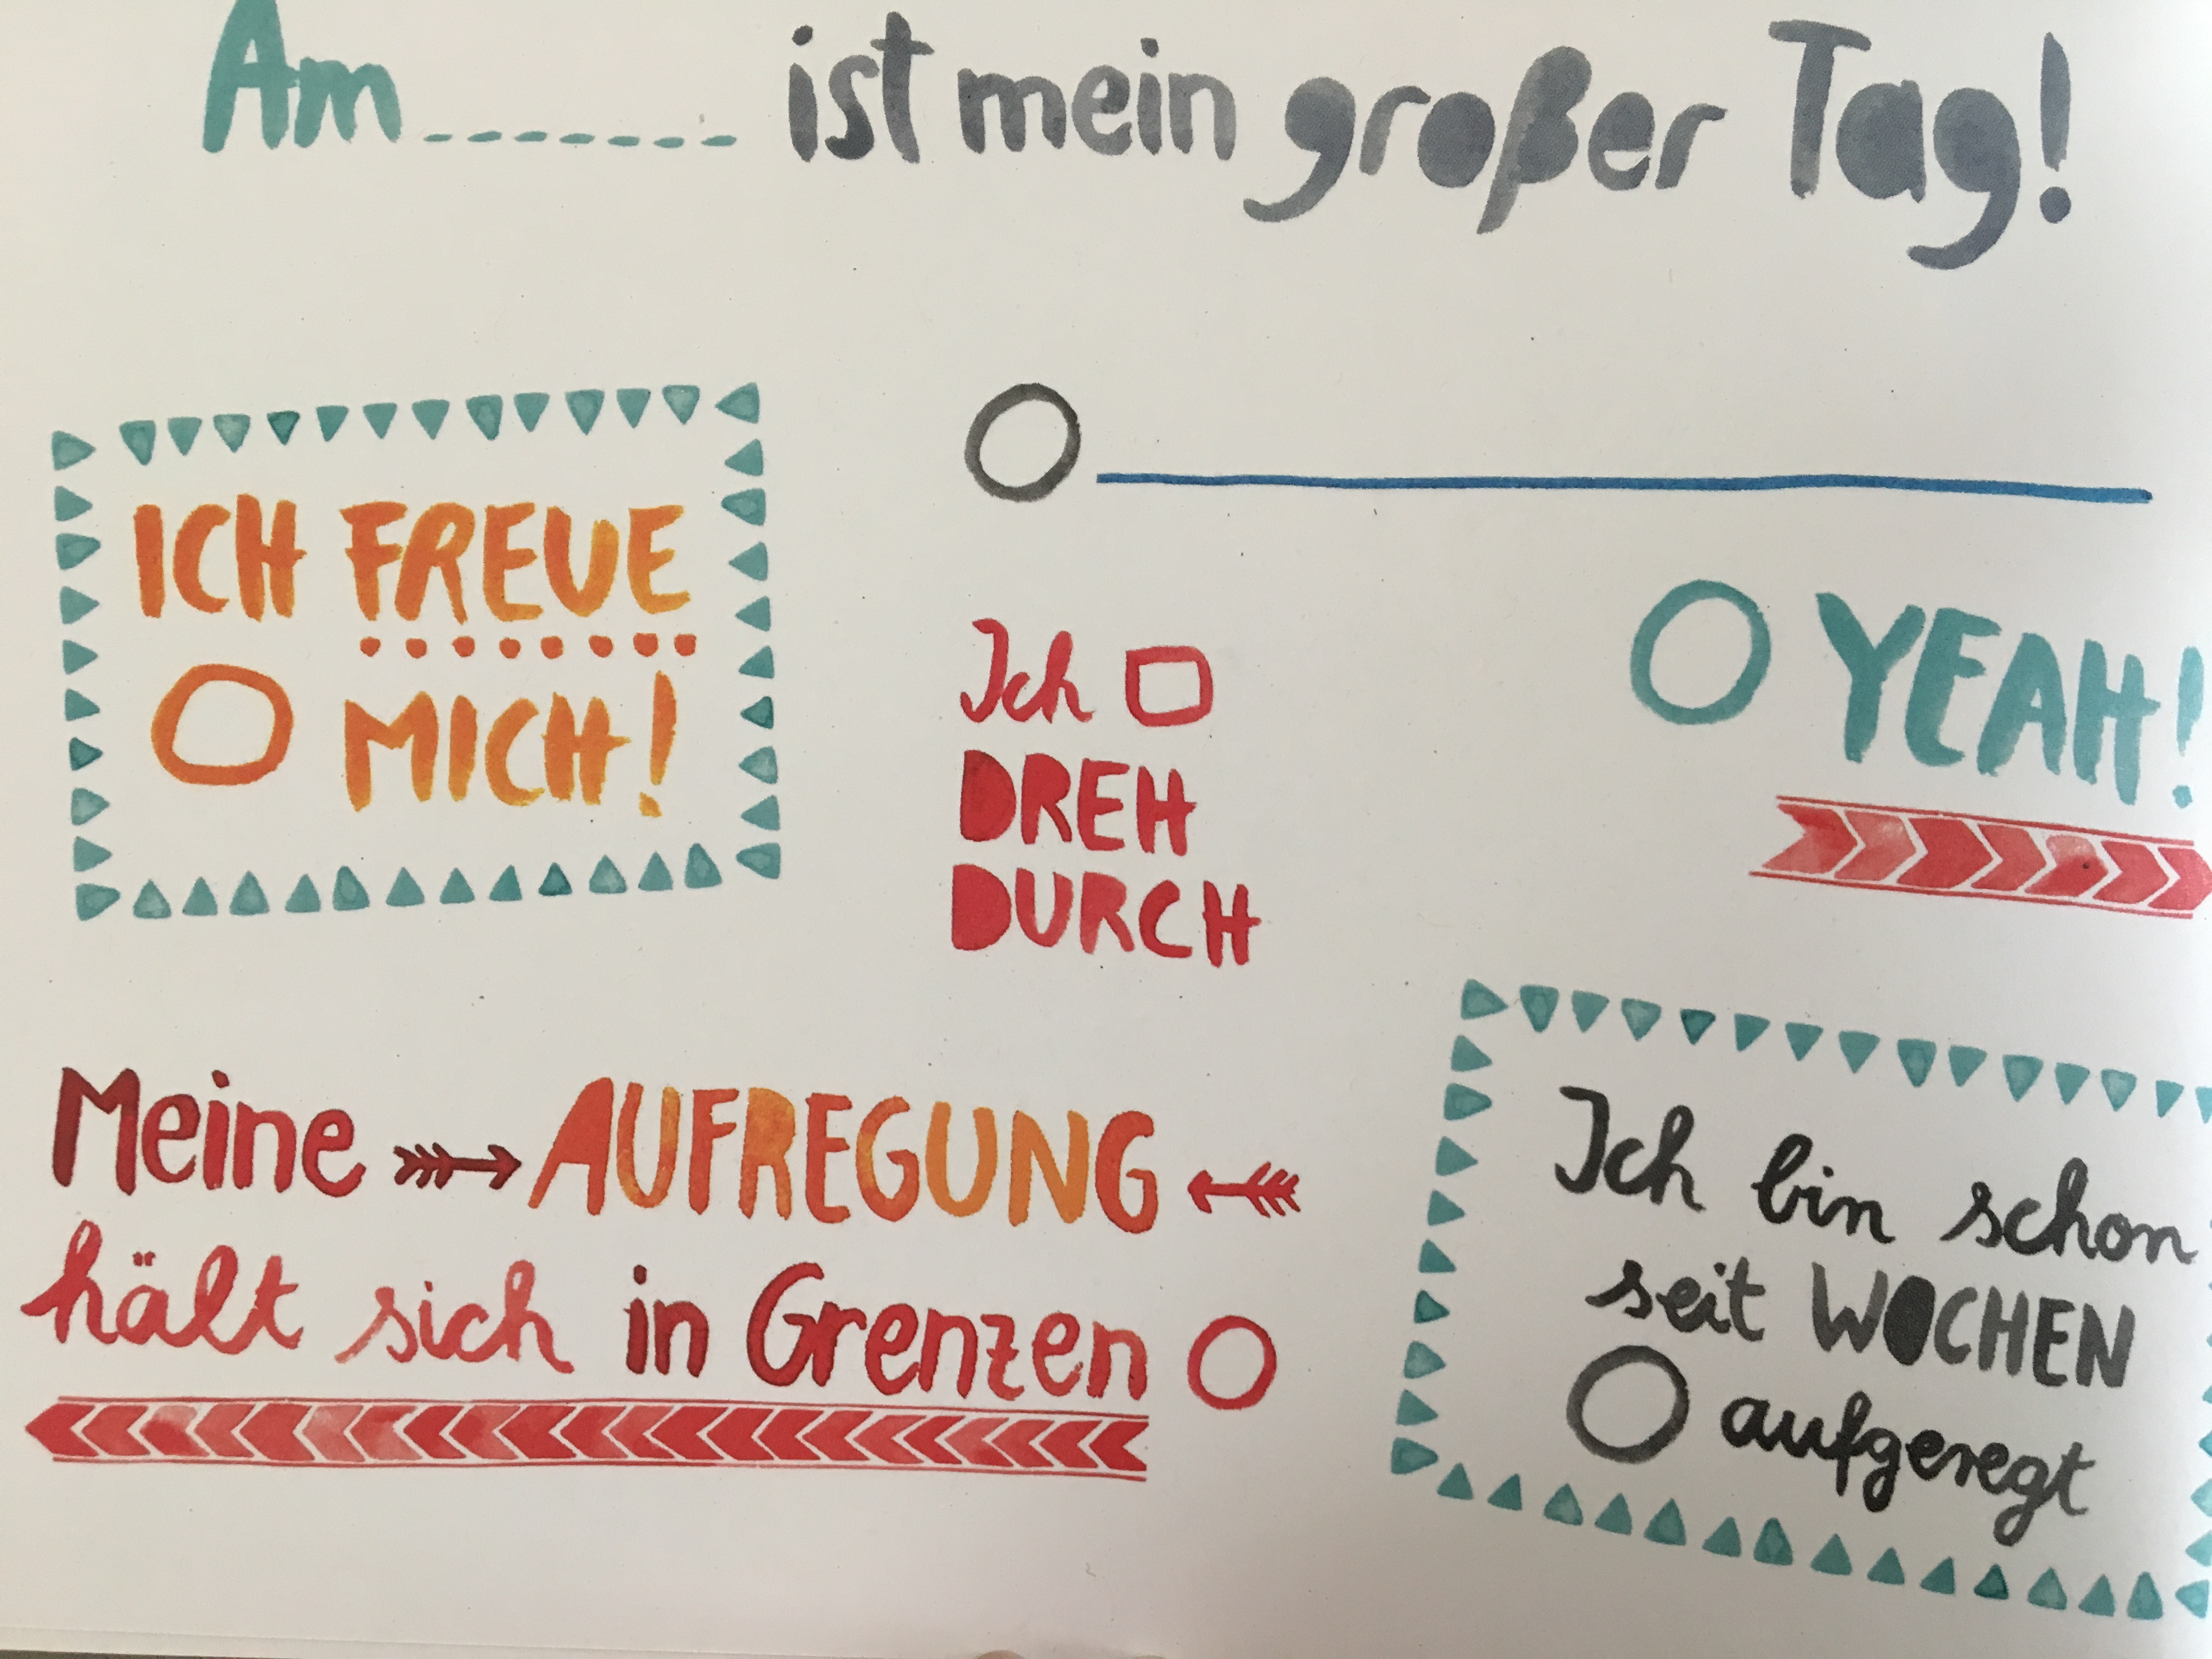 Am ist mein großer Tag!
ICH FREUE
MICH!
Ich
DREH
DURCH
YEAH!
Meine AUFREGUNG
hält sich in Grenzen
Ich bin schon
seit WOCHEN
aufgeregt